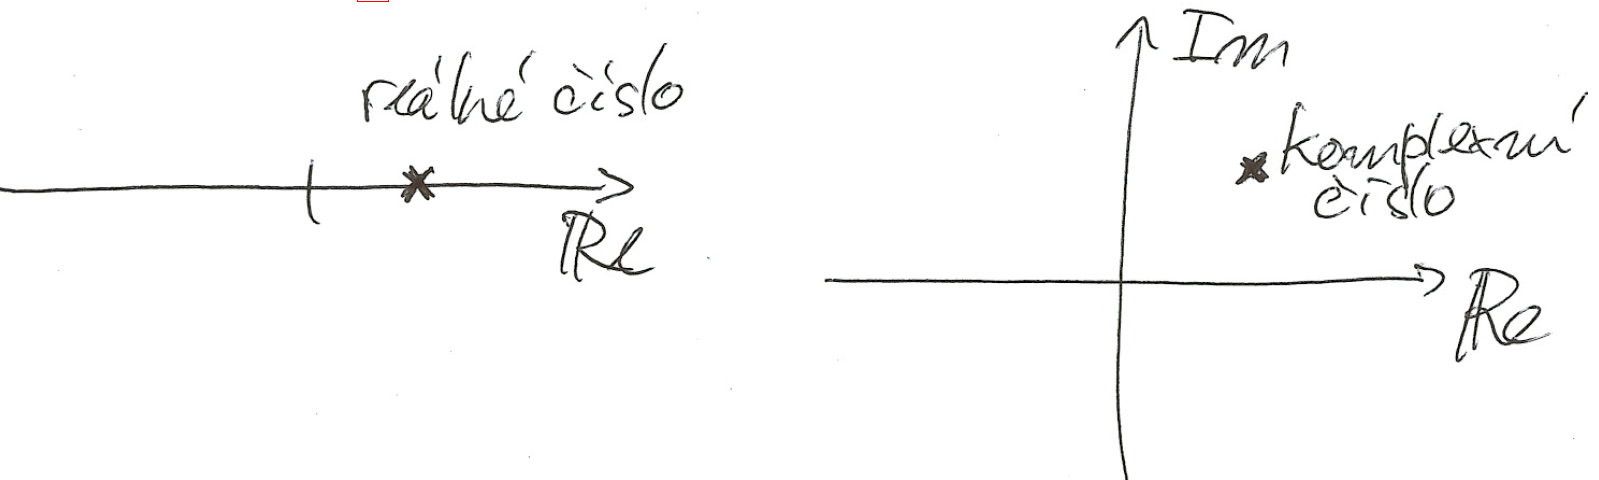 reálné číslo
Re
Im
komplexní
číslo
Re